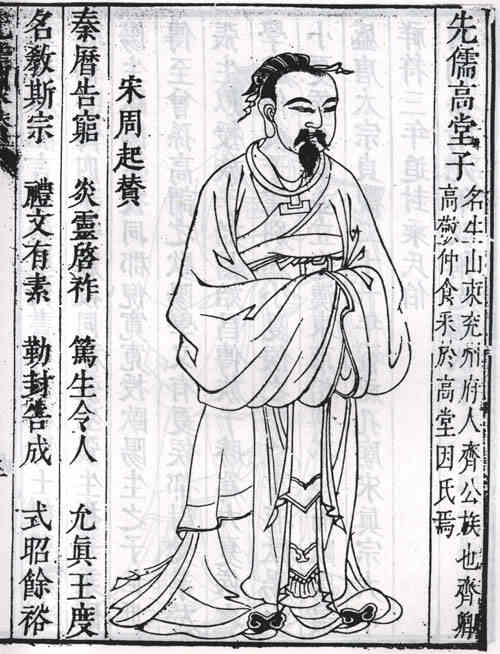 先儒高堂子
名生山東兖州府人齊公族也齊卿
高敬仲食采於高堂因氏焉
宋周起賛
秦曆告窮 炎靈啓祚 篤生令人 允眞王度
名教斯宗 禮文有素 勒封告成 式昭餘裕